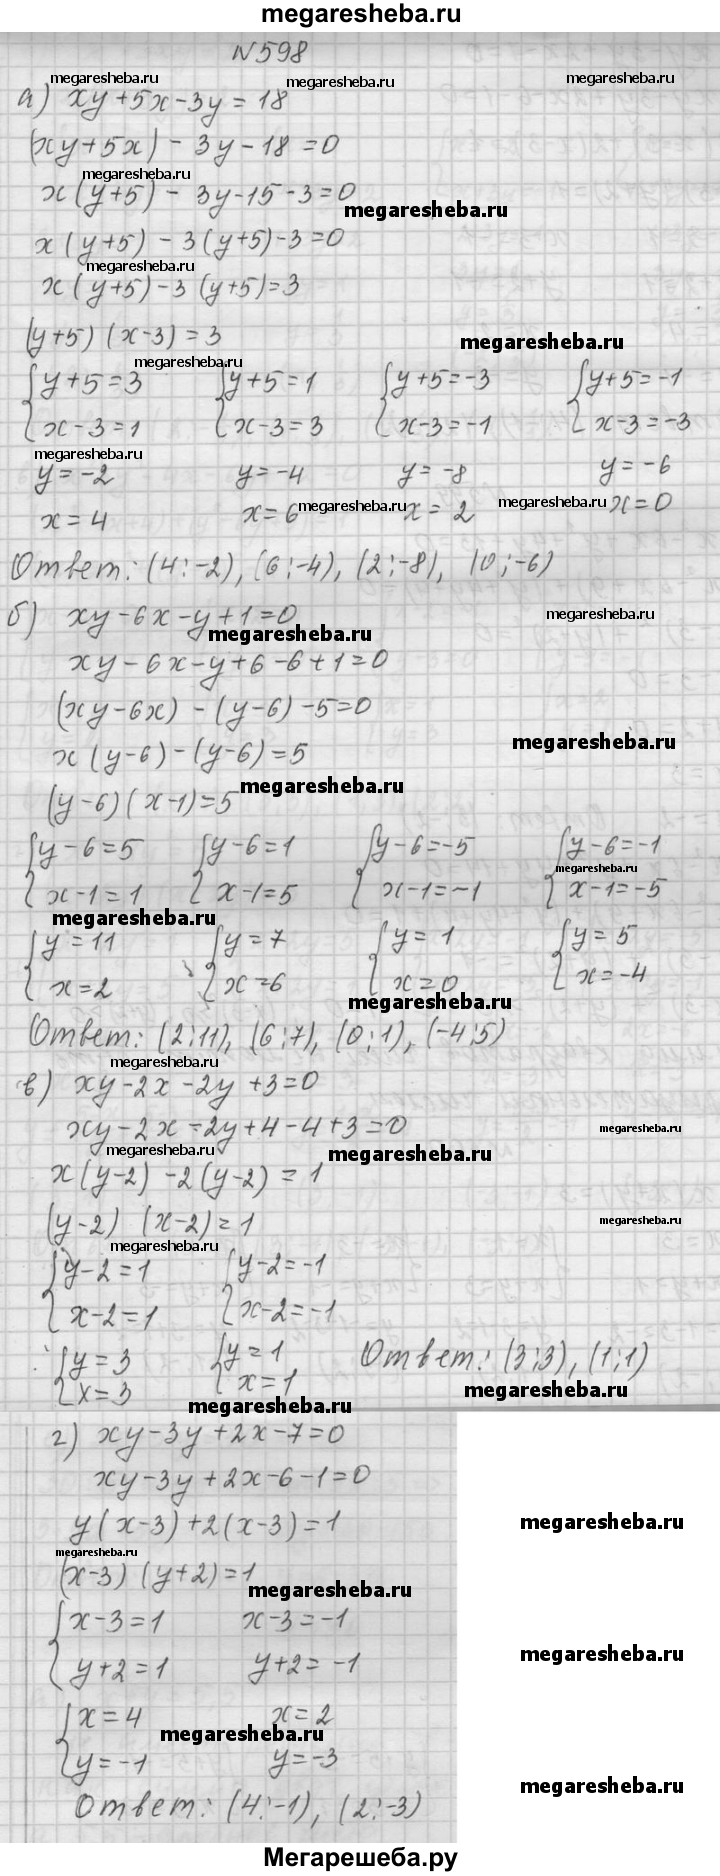 megaresheba.ru
№598
megaresheba.ru megaresheba.ru megaresheba.ru
а) xy+5x-3y=18
(xy+5x) - 3y-18 =0
megaresheba.ru
x(y+5) - 3y-15-3=0
megaresheba.ru
x(y+5) - 3(y+5)-3=0
megaresheba.ru
x(y+5)-3(y+5)=3
(y+5)(x-3)=3
megaresheba.ru
megaresheba.ru
{y+5=3 {y+5=1 {y+5=-3 {y+5=-1
x-3=1 x-3=3 x-3=-1 x-3=-3
megaresheba.ru
y=-2 y=-4 y=-8 y=-6
megaresheba.ru megaresheba.ru
x=4 x=6 x=2 x=0
Ответ: (4;-2), (6;-4), (2;-8), (0;-6)
б) xy-6x-y+1=0
megaresheba.ru
megaresheba.ru
xy-6x-y+6-6+1=0
(xy-6x) - (y-6)-5=0
megaresheba.ru
x(y-6)-(y-6)=5
megaresheba.ru
(y-6)(x-1)=5
{y-6=5 {y-6=1 {y-6=-5 {y-6=-1
megaresheba.ru
x-1=1 x-1=5 x-1=-1 x-1=-5
megaresheba.ru
{y=11 {y=7 {y=1 {y=5
x=2 x=6 x=0 x=-4
megaresheba.ru
Ответ: (2;11), (6;7), (0;1), (-4;5)
megaresheba.ru
в) xy-2x-2y+3=0
xy-2x-2y+4-4+3=0
megaresheba.ru
megaresheba.ru megaresheba.ru
x(y-2)-2(y-2)=1
(y-2)(x-2)=1
megaresheba.ru
megaresheba.ru
{y-2=1 {y-2=-1
x-2=1 x-2=-1
{y=3 {y=1 Ответ: (3;3), (1;1)
x=3 x=1
megaresheba.ru
megaresheba.ru
г) xy-3y+2x-7=0
xy-3y+2x-6-1=0
y(x-3)+2(x-3)=1
megaresheba.ru
megaresheba.ru
(x-3)(y+2)=1
megaresheba.ru
{x-3=1 x-3=-1
y+2=1 y+2=-1
megaresheba.ru
{x=4 x=2
megaresheba.ru
y=-1 y=-3
megaresheba.ru
Ответ: (4;-1), (2;-3)
Мегарешеба.ру